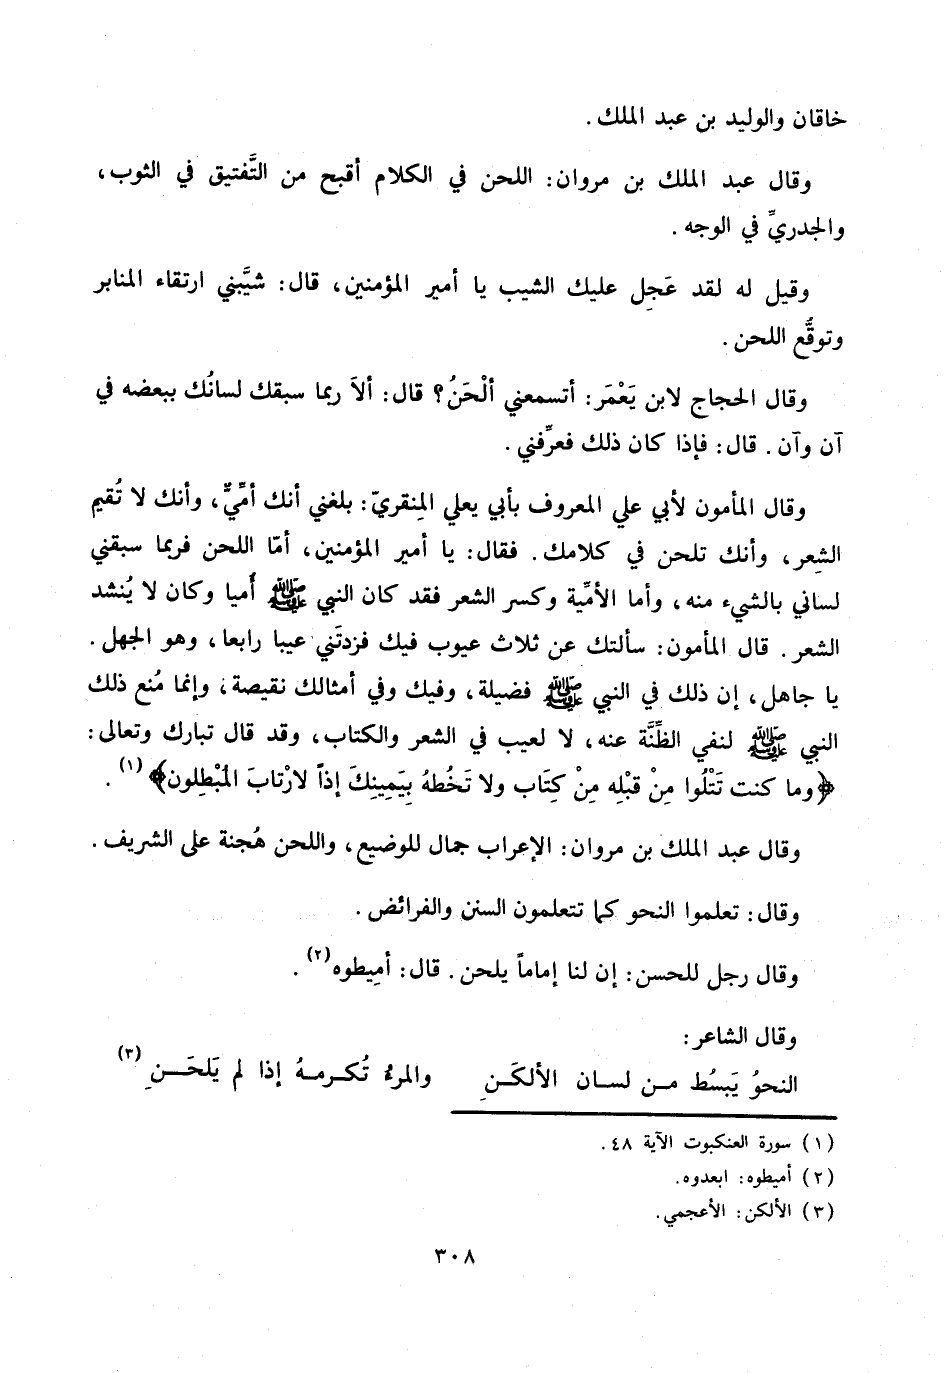 خاقان والوليد بن عبد الملك .
وقال عبد الملك بن مروان: اللحن في الكلام أقبح من التَّفتيق في الثوب،
والجدريِّ في الوجه .
وقيل له لقد عَجِل عليك الشيب يا أمير المؤمنين، قال: شيَّبني ارتقاء المنابر
وتوقُّع اللحن .
وقال الحجاج لابن يَعْمَر: أتسمعني ألْحَنُ؟ قال: ألاَ ربما سبقك لسانُك ببعضه في
آن وآن . قال: فإذا كان ذلك فعرِّفني .
وقال المأمون لأبي علي المعروف بأبي يعلي المِنقريّ: بلغني أنك أمِّيٌّ، وأنك لا تُقيم
الشِعر، وأنك تلحن في كلامك. فقال: يا أمير المؤمنين، أمّا اللحن فربما سبقني
لساني بالشيء منه، وأما الأمِّية وكسر الشعر فقد كان النبي ﷺ أُميا وكان لا يُنشد
الشعر. قال المأمون: سألتك عن ثلاث عيوب فيك فزدتَني عيبا رابعا، وهو الجهل.
يا جاهل، إن ذلك في النبي ﷺ فضيلة، وفيك وفي أمثالك نقيصة، وإنما مُنع ذلك
النبي ﷺ لنفي الظِّنَّة عنه، لا لعيب في الشعر والكتاب، وقد قال تبارك وتعالى:
﴿وما كنت تَتْلُوا مِنْ قبْلِه مِنْ كِتَاب ولا تَخُطهُ بِيَمِينِكَ إذاً لارْتابَ المُبْطِلون﴾(١) .
وقال عبد الملك بن مروان: الإعراب جمال للوضيع، واللحن هُجنة على الشريف.
وقال: تعلموا النحو كما تتعلمون السنن والفرائض.
وقال رجل للحسن: إن لنا إماماً يلحن. قال: أمِيطوه(٢) .
وقال الشاعر:
النحوُ يَبسُط مـن لسـان الألكَـنِ والمرءُ تُكـرمـهُ إذا لم يَلحَـــنِ(٣)
(١) سورة العنكبوت الآية ٤٨.
(٢) أميطوه: ابعدوه.
(٣) الألكن: الأعجمي.
٣٠٨